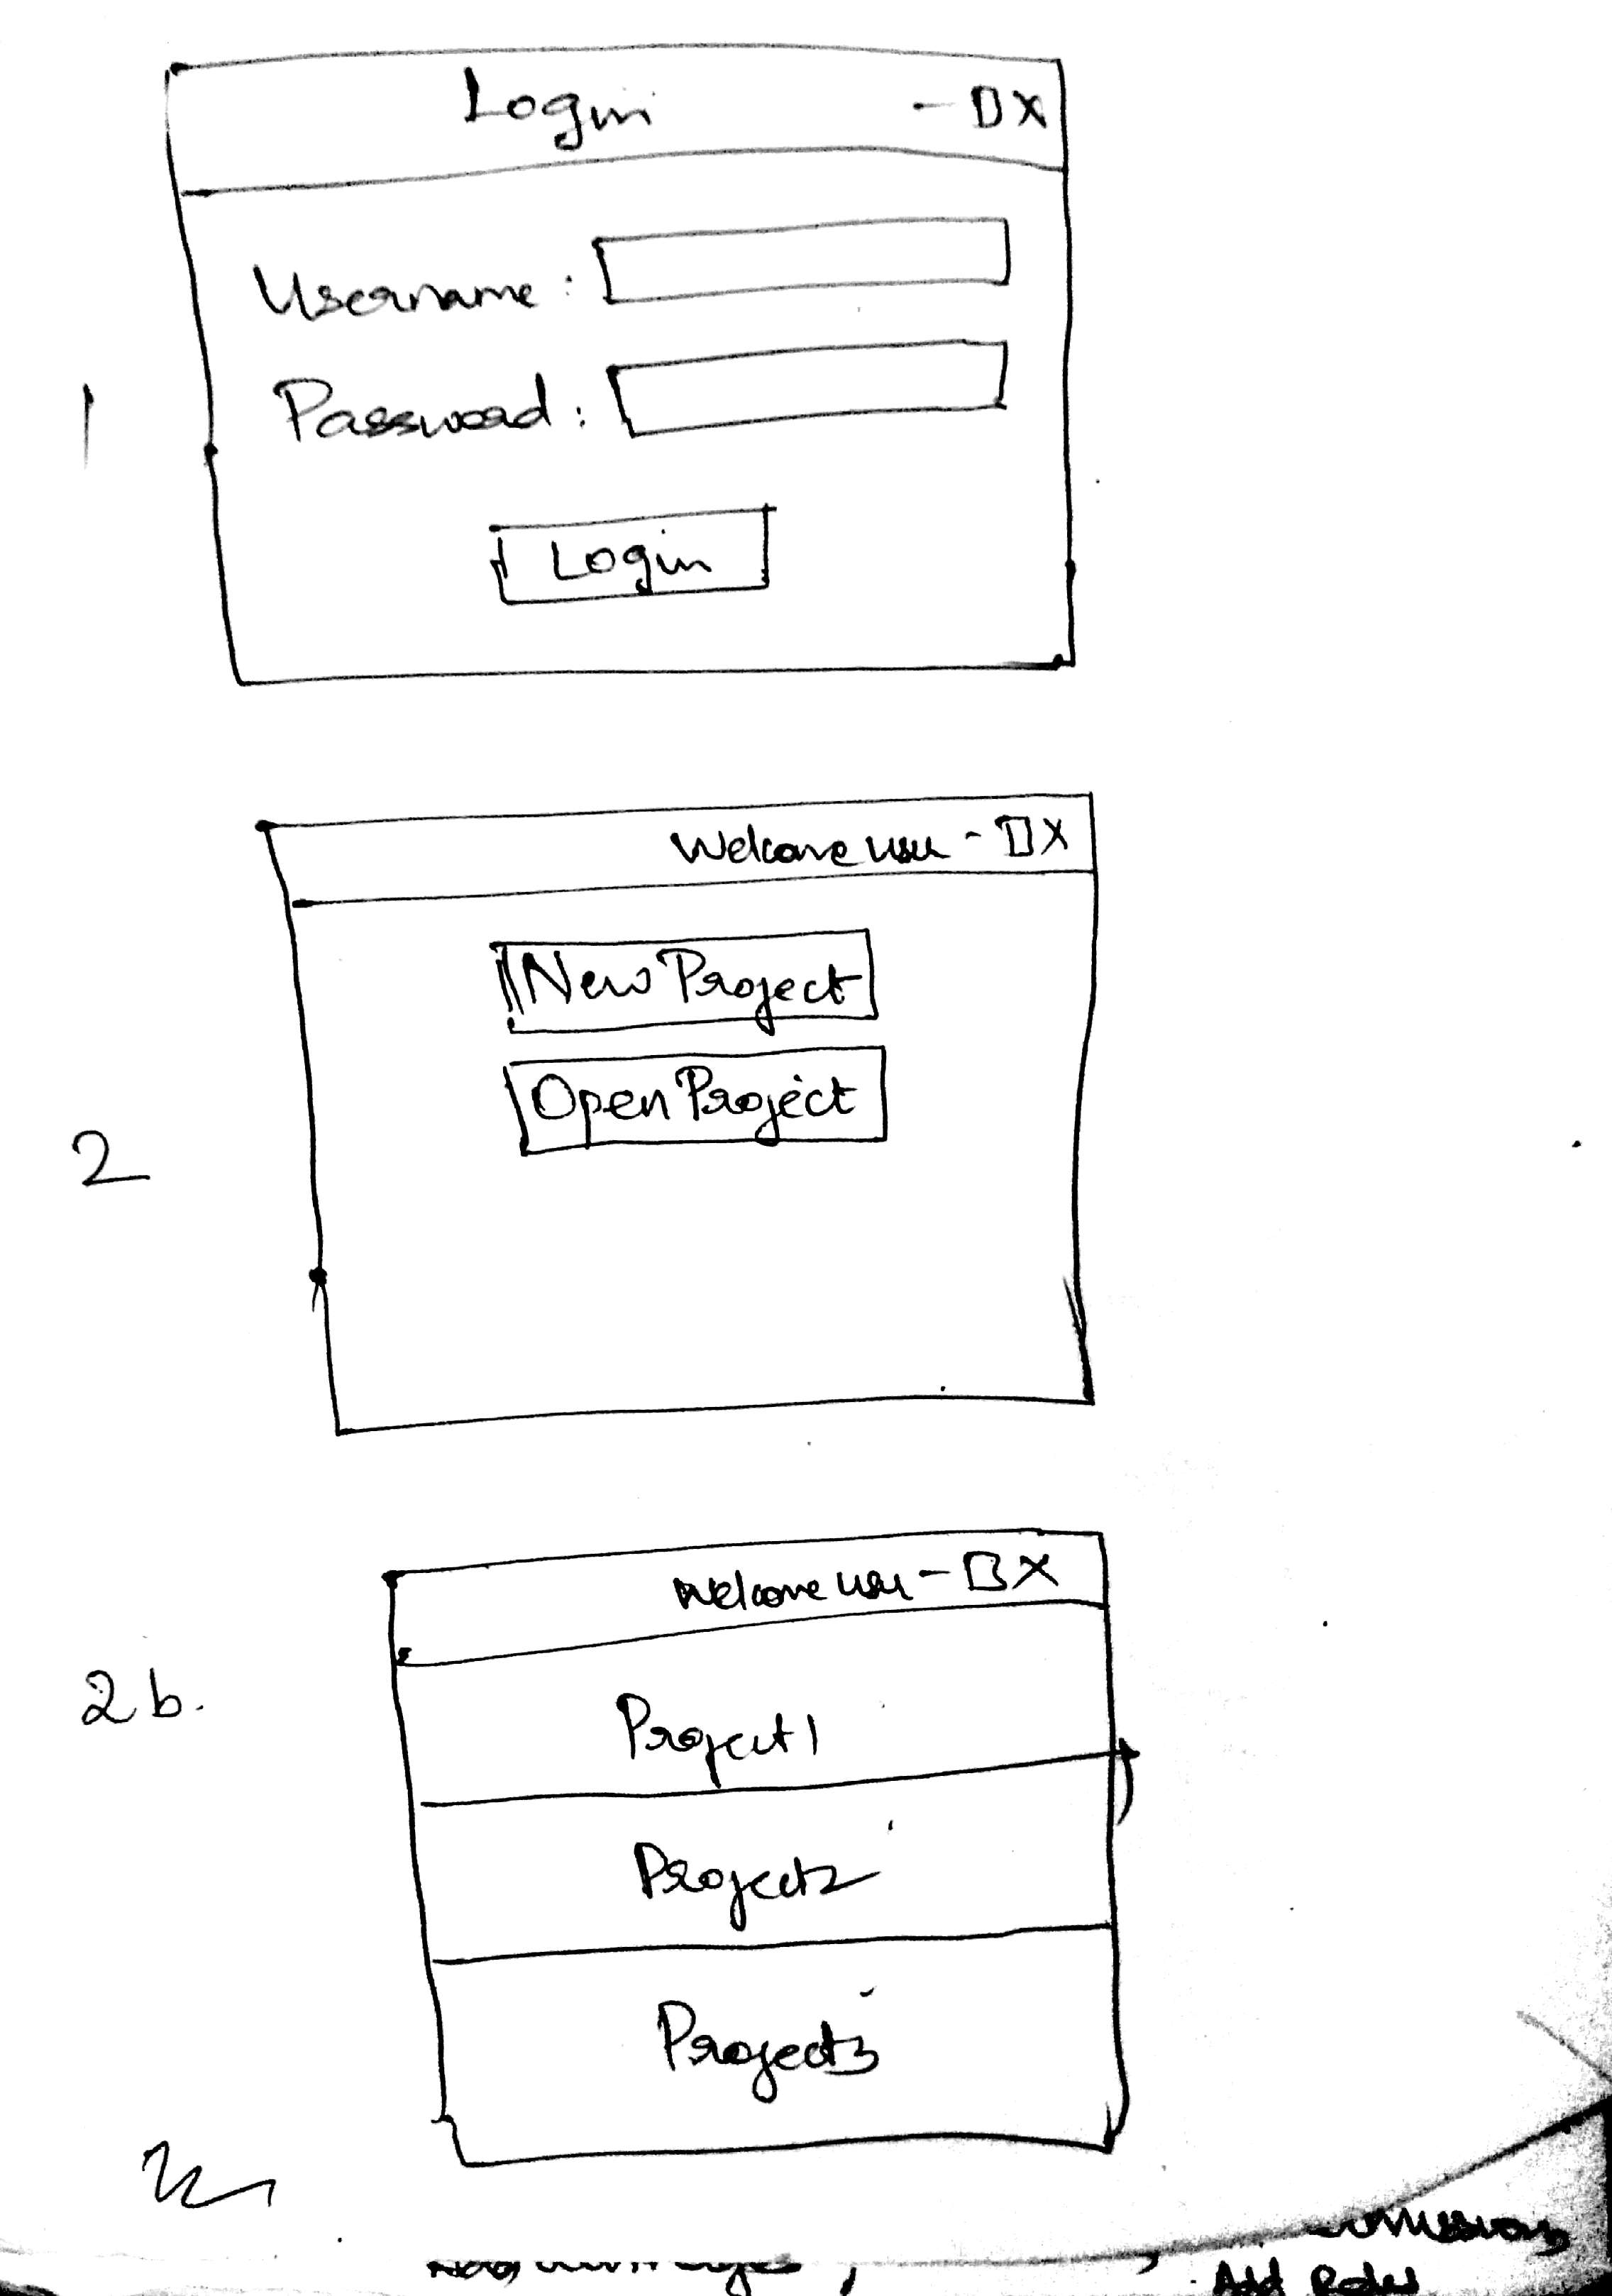 Login - □ X
Username :
Password :
1
Login
Welcome user - □ X
New Project
Open Project
2
Welcome user - □ X
2b.
Project1
Project2
Project3
Add Roles